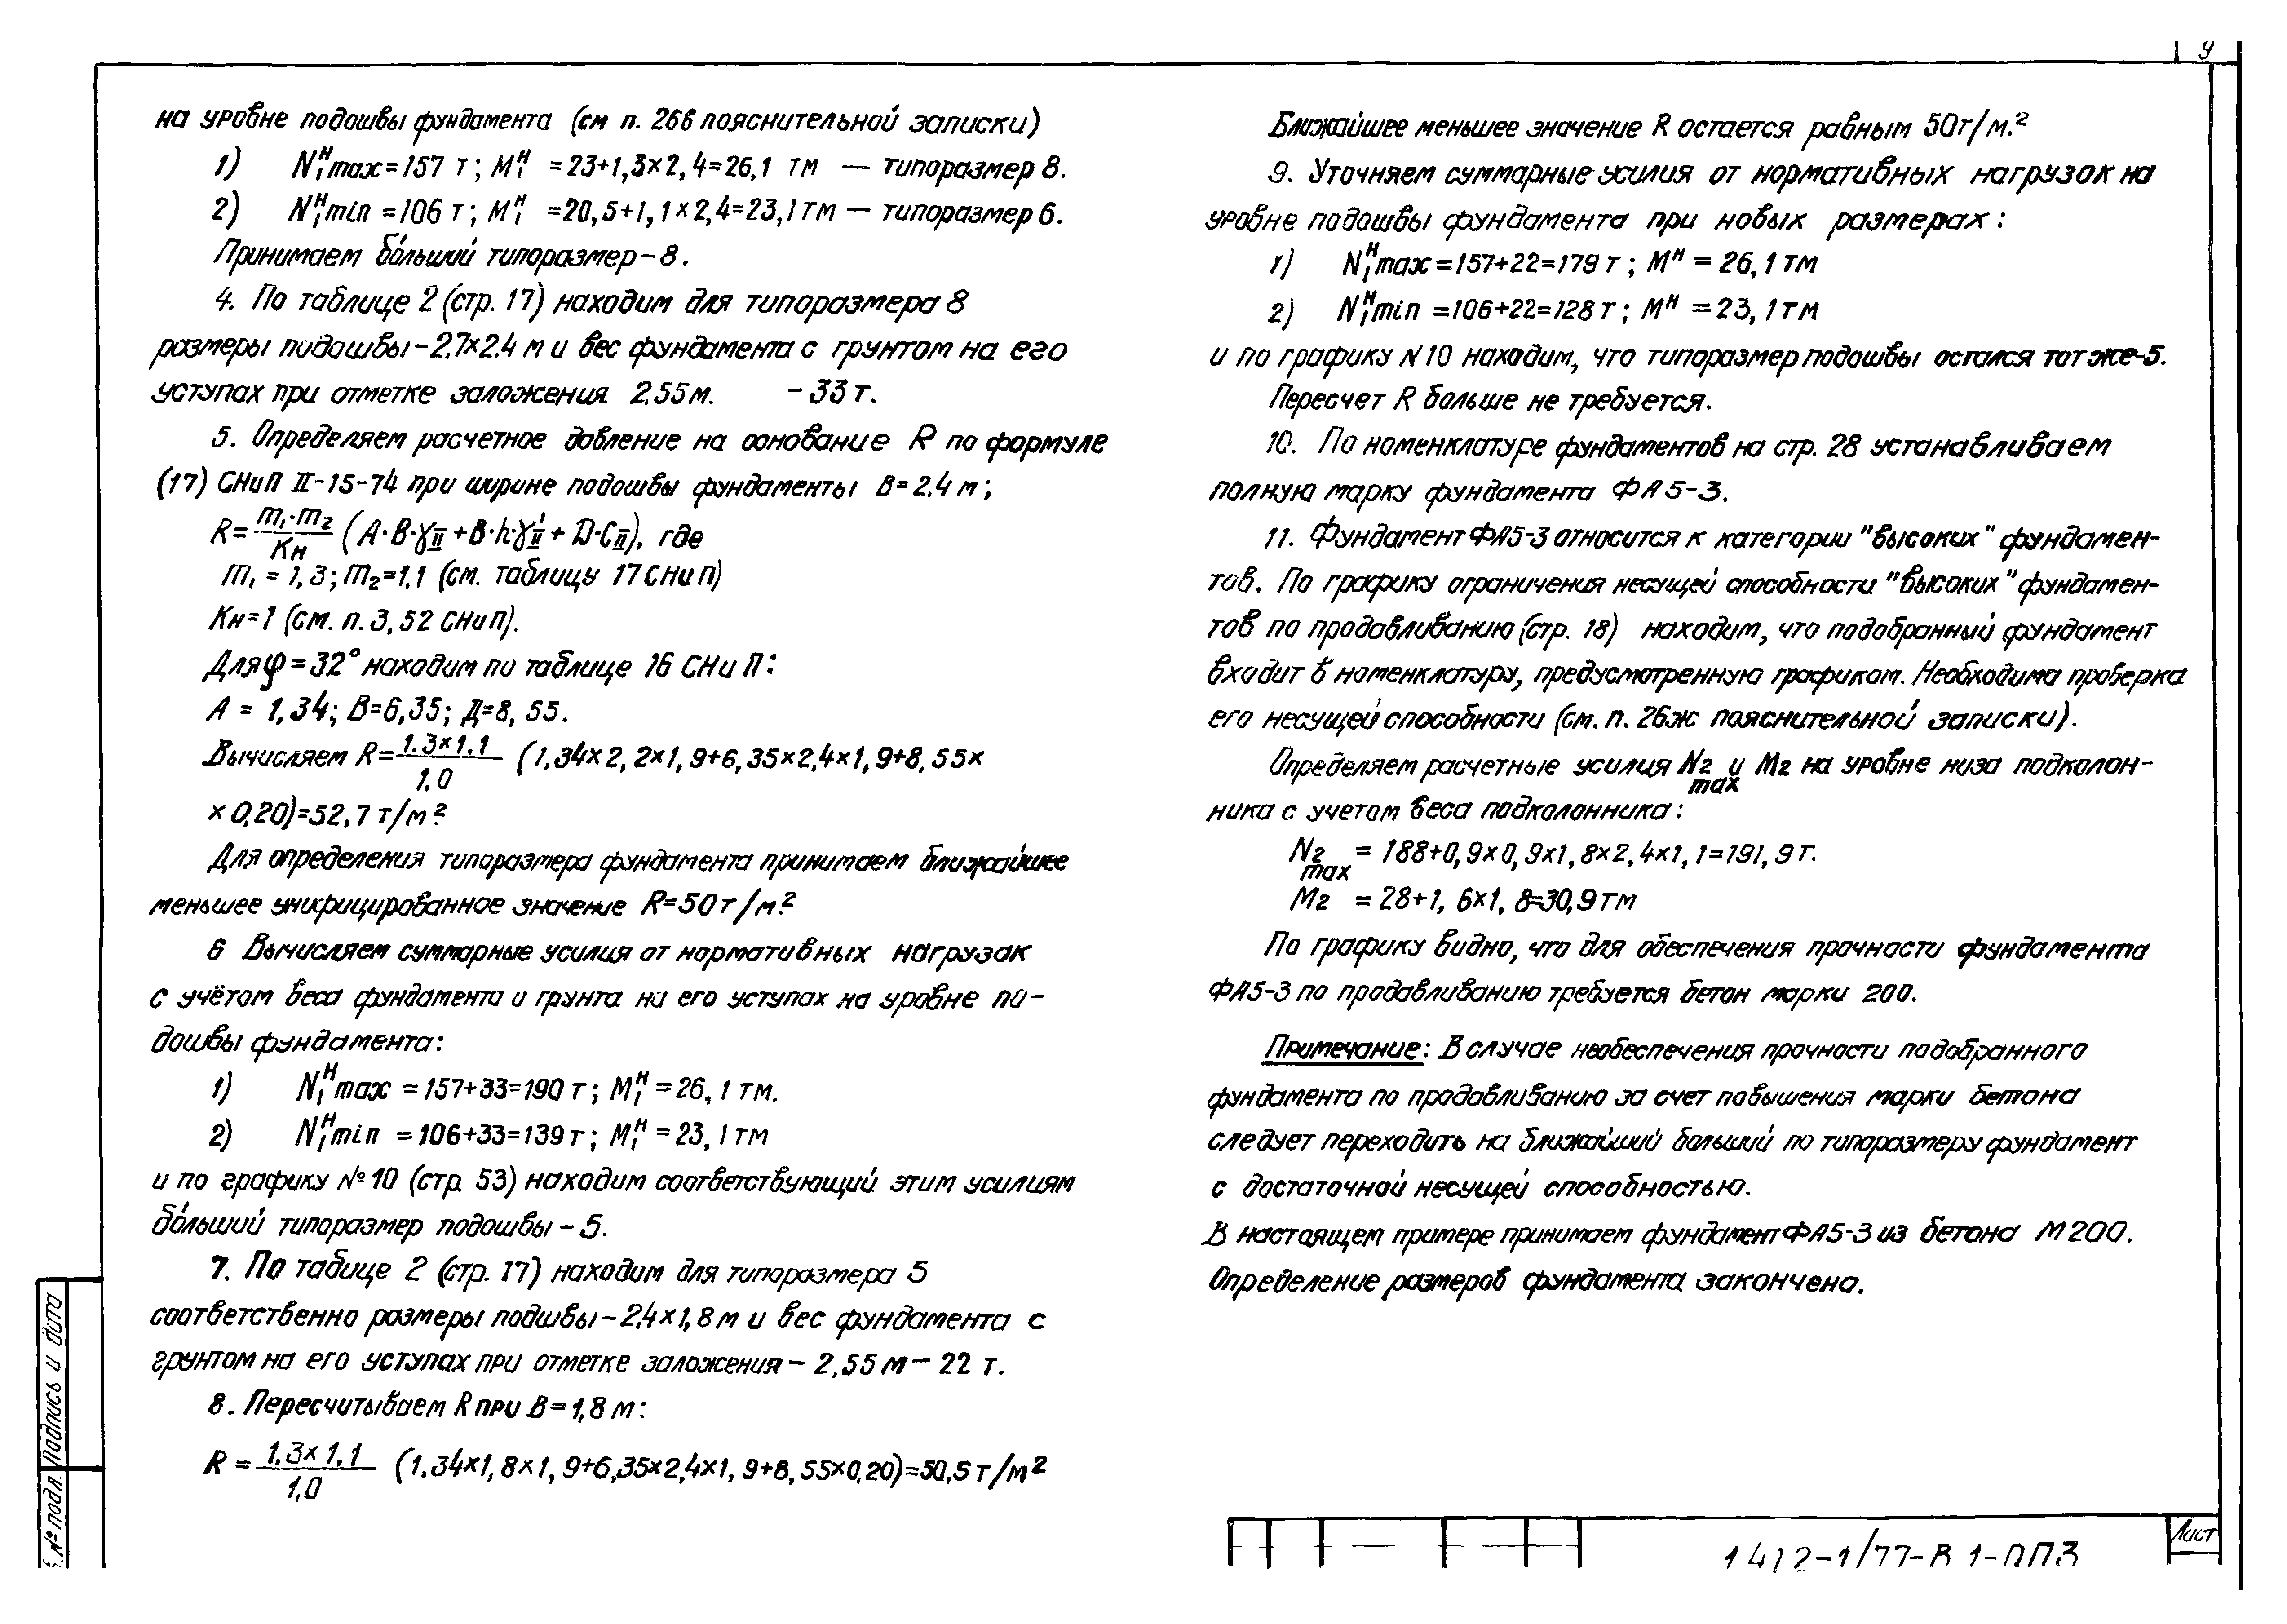 9
на уровне подошвы фундамента (см п. 26б пояснительной записки)
1) N₁ᴴmax=157 т; M₁ᴴ =23+1,3×2,4=26,1 тм — типоразмер 8.
2) N₁ᴴmin =106 т; M₁ᴴ =20,5+1,1×2,4=23,1тм — типоразмер 6.
Принимаем бо́льший типоразмер-8.
4. По таблице 2 (стр. 17) находим для типоразмера 8
размеры подошвы-2.7×2.4 м и вес фундамента с грунтом на его
уступах при отметке заложения 2.55м. -33т.
5. Определяем расчетное давление на основание R по формуле
(17) СНиП II-15-74 при ширине подошвы фундаменты B=2.4 м;
R= m₁·m₂/Kн (A·B·γII+B·h·γ'II+D·CII), где
m₁ = 1,3; m₂=1,1 (см. таблицу 17 СНиП)
Kн=1 (см. п. 3,52 СНиП).
Для φ=32° находим по таблице 16 СНиП:
A = 1,34; B=6,35; Д=8,55.
Вычисляем R= 1.3×1.1/1,0 (1,34×2,2×1,9+6,35×2,4×1,9+8,55×
×0,20)=52,7 т/м².
Для определения типоразмера фундамента принимаем ближайшее
меньшее унифицированное значение R=50т/м².
6 Вычисляем суммарные усилия от нормативных нагрузок
с учётом веса фундамента и грунта на его уступах на уровне по-
дошвы фундамента:
1) N₁ᴴmax =157+33=190 т; M₁ᴴ =26,1 тм.
2) N₁ᴴmin =106+33=139т; M₁ᴴ =23,1тм
и по графику №10 (стр. 53) находим соответствующий этим усилиям
бо́льший типоразмер подошвы-5.
7. По табице 2 (стр. 17) находим для типоразмера 5
соответственно размеры подшвы-2,4×1,8м и вес фундамента с
грунтом на его уступах при отметке заложения-2,55м-22 т.
8. Пересчитываем R при B=1,8м:
R = 1,3×1,1/1,0 (1.34×1,8×1,9+6,35×2,4×1,9+8,55×0,20)=50,5т/м²
Ближайшее меньшее значение R остается равным 50т/м.²
9. Уточняем суммарные усилия от нормативных нагрузок на
уровне подошвы фундамента при новых размерах:
1) N₁ᴴmax=157+22=179т; Mᴴ = 26,1тм
2) N₁ᴴmin =106+22=128т; Mᴴ =23,1тм
и по графику N10 находим, что типоразмер подошвы остался тот же-5.
Пересчет R больше не требуется.
10. По номенклатуре фундаментов на стр. 28 устанавливаем
полную марку фундамента ФА5-3.
11. Фундамент ФА5-3 относится к категории "высоких" фундамен-
тов. По графику ограничения несущей способности "высоких" фундамен-
тов по продавливанию (стр. 18) находим, что подобранный фундамент
входит в номенклатуру, предусмотренную графиком. Необходима проверка
его несущей способности (см. п. 26ж пояснительной записки).
Определяем расчетные усилия N₂ max и M₂ на уровне низа подколон-
ника с учетом веса подколонника:
N₂ max = 188+0,9×0,9×1,8×2,4×1,1=191,9т.
M₂ = 28+1,6×1,8=30,9тм
По графику видно, что для обеспечения прочности фундамента
ФА5-3 по продавливанию требуется бетон марки 200.
Примечание: В случае необеспечения прочности подобранного
фундамента по продавливанию за счет повышения марки бетона
следует переходить на ближайший больший по типоразмеру фундамент
с достаточной несущей способностью.
В настоящем примере принимаем фундамент ФА5-3 из бетона М200.
Определение размеров фундамента закончена.
№ подл. Подпись и дата
1412-1/77-В 1-ПП3
Лист